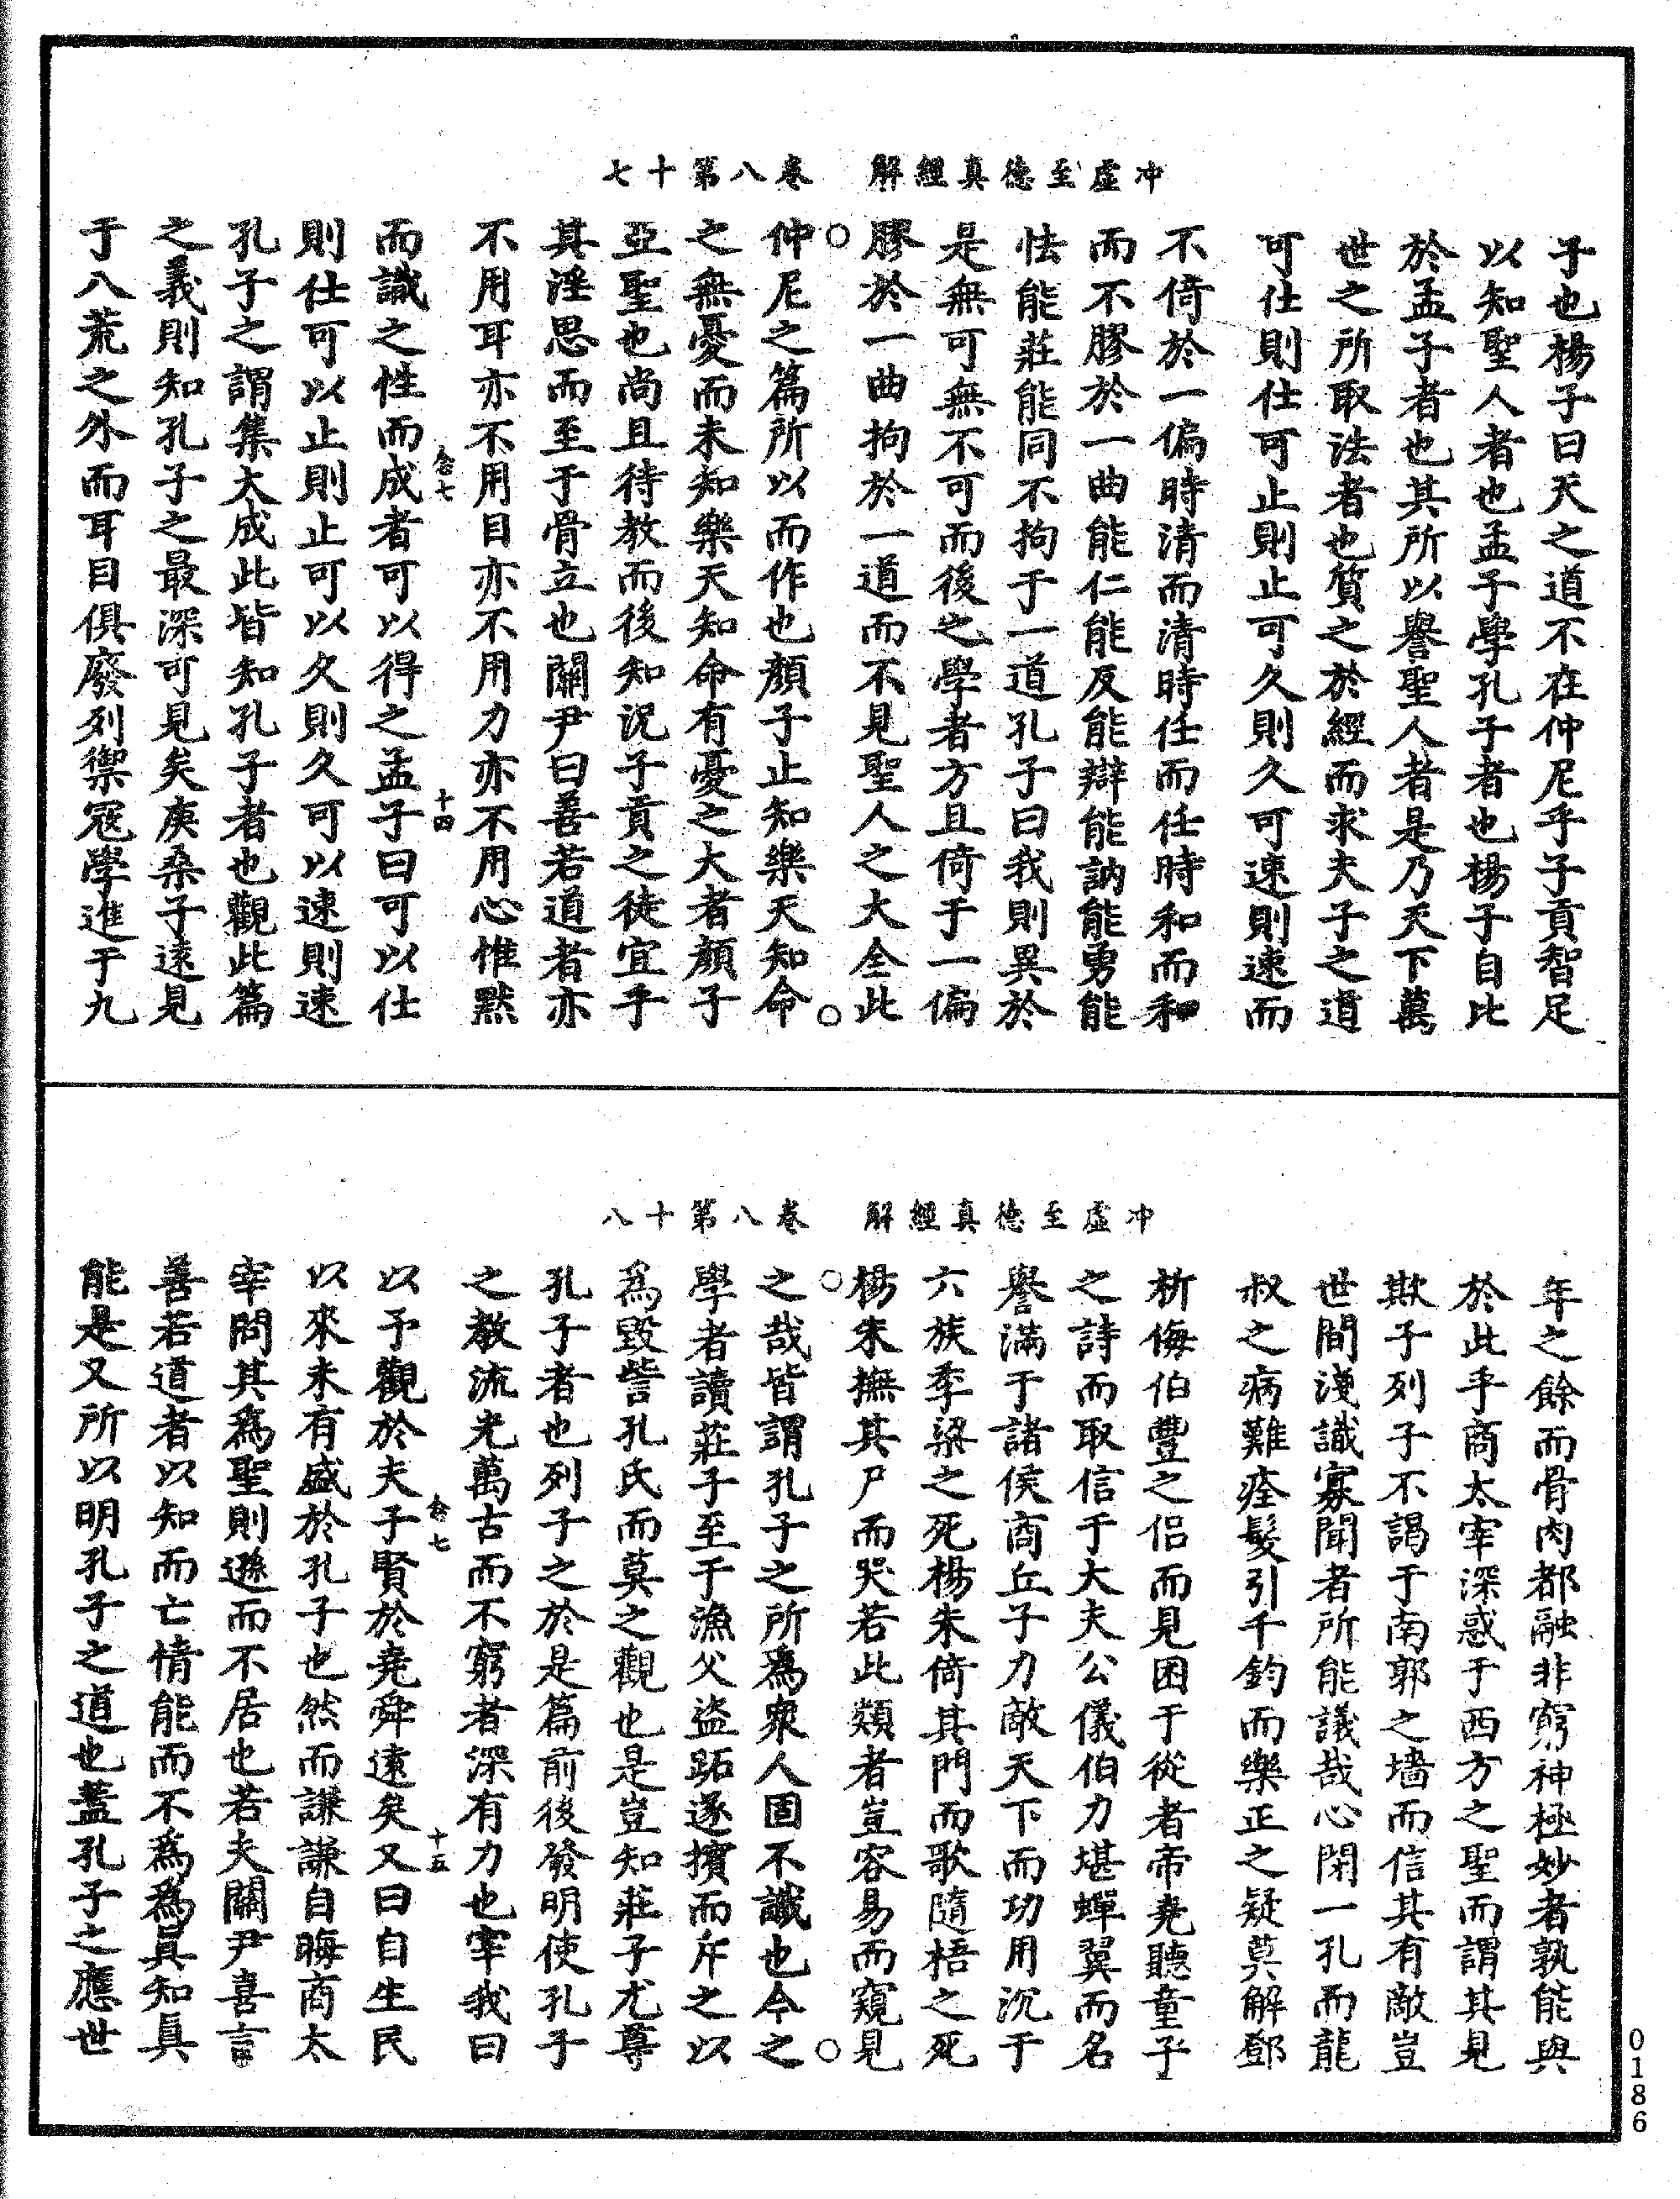 冲虛至德真經解　卷八第十七
子也楊子曰天之道不在仲尼乎子貢智足
以知聖人者也孟子學孔子者也楊子自比
於孟子者也其所以譽聖人者是乃天下萬
世之所取法者也質之於經而求夫子之道
可仕則仕可止則止可久則久可速則速而
不倚於一偏時清而清時任而任時和而和
而不膠於一曲能仁能反能辯能訥能勇能
怯能莊能同不拘于一道孔子曰我則異於
是無可無不可而後之學者方且倚于一偏
膠於一曲拘於一道而不見聖人之大全此
仲尼之篇所以而作也顏子止知樂天知命
之無憂而未知樂天知命有憂之大者顏子
亞聖也尚且待教而後知況子貢之徒宜乎
其淫思而至于骨立也關尹曰善若道者亦
不用耳亦不用目亦不用力亦不用心惟默
而識之性而成者可以得之孟子曰可以仕
則仕可以止則止可以久則久可以速則速
孔子之謂集大成此皆知孔子者也觀此篇
之義則知孔子之最深可見矣庚桑子遠見
于八荒之外而耳目俱廢列禦寇學進于九
冲虛至德真經解　卷八第十八
年之餘而骨肉都融非窮神極妙者孰能與
於此乎商太宰深惑于西方之聖而謂其見
欺子列子不謁于南郭之墻而信其有敵豈
世間淺識寡聞者所能議哉心閉一孔而龍
叔之病難痊髮引千鈞而樂正之疑莫解鄧
析侮伯豐之侶而見困于從者帝堯聽童子
之詩而取信于大夫公儀伯力堪蟬翼而名
譽滿于諸侯商丘子力敵天下而功用沉于
六族季梁之死楊朱倚其門而歌隨梧之死
楊朱撫其尸而哭若此類者豈容易而窺見
之哉皆謂孔子之所為衆人固不識也今之
學者讀莊子至于漁父盜跖遂擯而斥之以
為毀訾孔氏而莫之觀也是豈知莊子尤尊
孔子者也列子之於是篇前後發明使孔子
之教流光萬古而不窮者深有力也宰我曰
以予觀於夫子賢於堯舜遠矣又曰自生民
以來未有盛於孔子也然而謙謙自晦商太
宰問其為聖則遜而不居也若夫關尹喜言
善若道者以知而亡情能而不為為真知真
能是又所以明孔子之道也蓋孔子之應世
0186